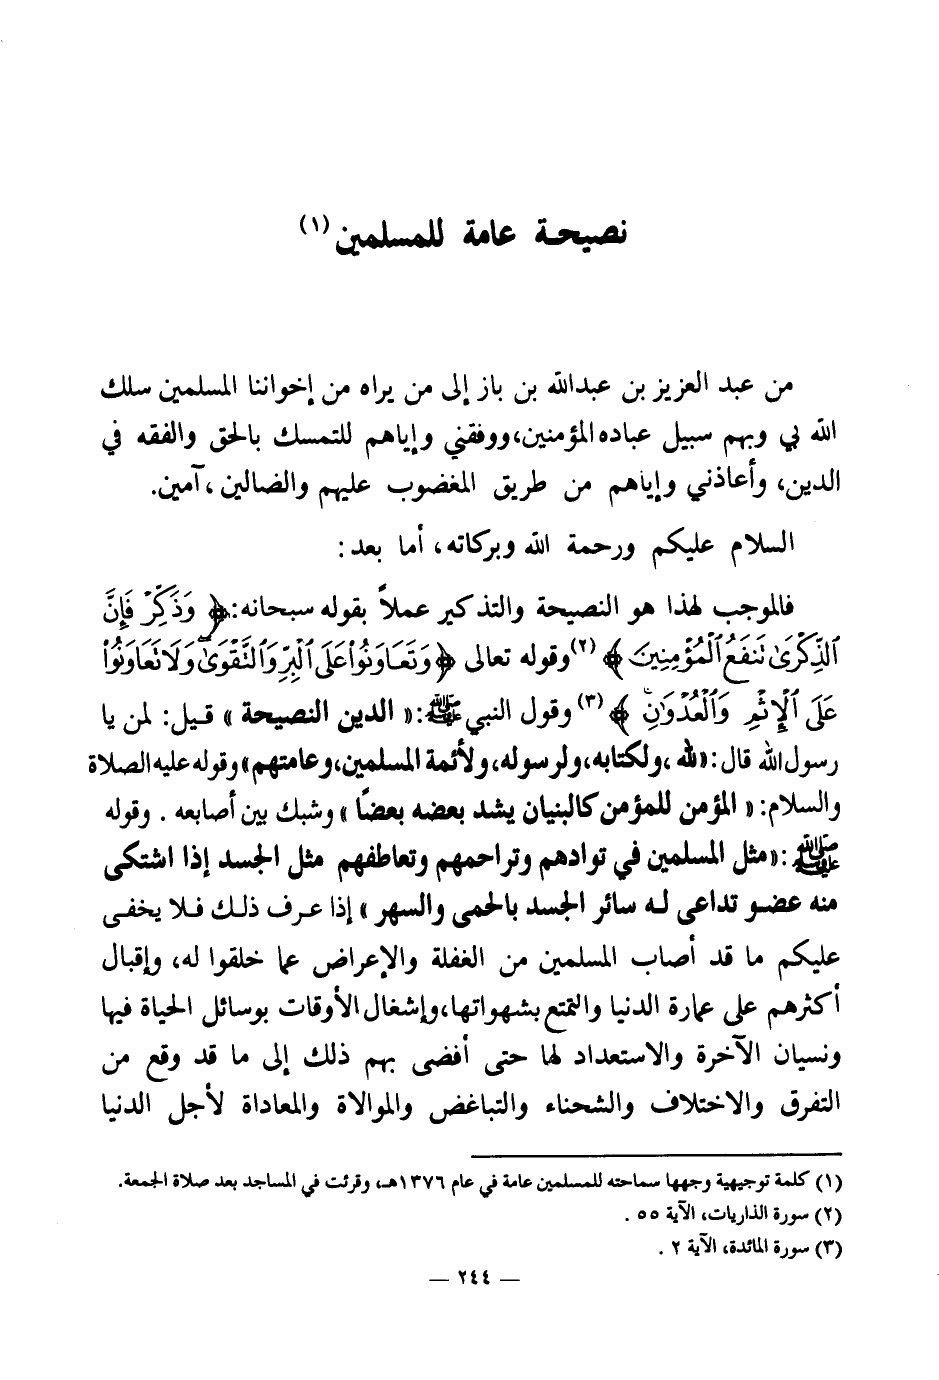 نصيحة عامة للمسلمين (١)
من عبد العزيز بن عبدالله بن باز إلى من يراه من إخواننا المسلمين سلك
الله بي وبهم سبيل عباده المؤمنين، ووفقني وإياهم للتمسك بالحق والفقه في
الدين، وأعاذني وإياهم من طريق المغضوب عليهم والضالين، آمين.
السلام عليكم ورحمة الله وبركاته، أما بعد:
فالموجب لهذا هو النصيحة والتذكير عملاً بقوله سبحانه: ﴿ وَذَكِّرْ فَإِنَّ
ٱلذِّكْرَىٰ تَنفَعُ ٱلْمُؤْمِنِينَ ﴾ (٢) وقوله تعالى ﴿ وَتَعَاوَنُوا۟ عَلَى ٱلْبِرِّ وَٱلتَّقْوَىٰ وَلَا تَعَاوَنُوا۟
عَلَى ٱلْإِثْمِ وَٱلْعُدْوَٰنِ ﴾ (٣) وقول النبي ﷺ: « الدين النصيحة » قيل: لمن يا
رسول الله قال: «لله، ولكتابه، ولرسوله، ولأئمة المسلمين، وعامتهم» وقوله عليه الصلاة
والسلام: « المؤمن للمؤمن كالبنيان يشد بعضه بعضًا » وشبك بين أصابعه . وقوله
ﷺ: «مثل المسلمين في توادهم وتراحمهم وتعاطفهم مثل الجسد إذا اشتكى
منه عضو تداعى له سائر الجسد بالحمى والسهر » إذا عرف ذلك فلا يخفى
عليكم ما قد أصاب المسلمين من الغفلة والإعراض عما خلقوا له، وإقبال
أكثرهم على عمارة الدنيا والتمتع بشهواتها، وإشغال الأوقات بوسائل الحياة فيها
ونسيان الآخرة والاستعداد لها حتى أفضى بهم ذلك إلى ما قد وقع من
التفرق والاختلاف والشحناء والتباغض والموالاة والمعاداة لأجل الدنيا
(١) كلمة توجيهية وجهها سماحته للمسلمين عامة في عام ١٣٧٦هـ، وقرئت في المساجد بعد صلاة الجمعة.
(٢) سورة الذاريات، الآية ٥٥ .
(٣) سورة المائدة، الآية ٢ .
— ٢٤٤ —